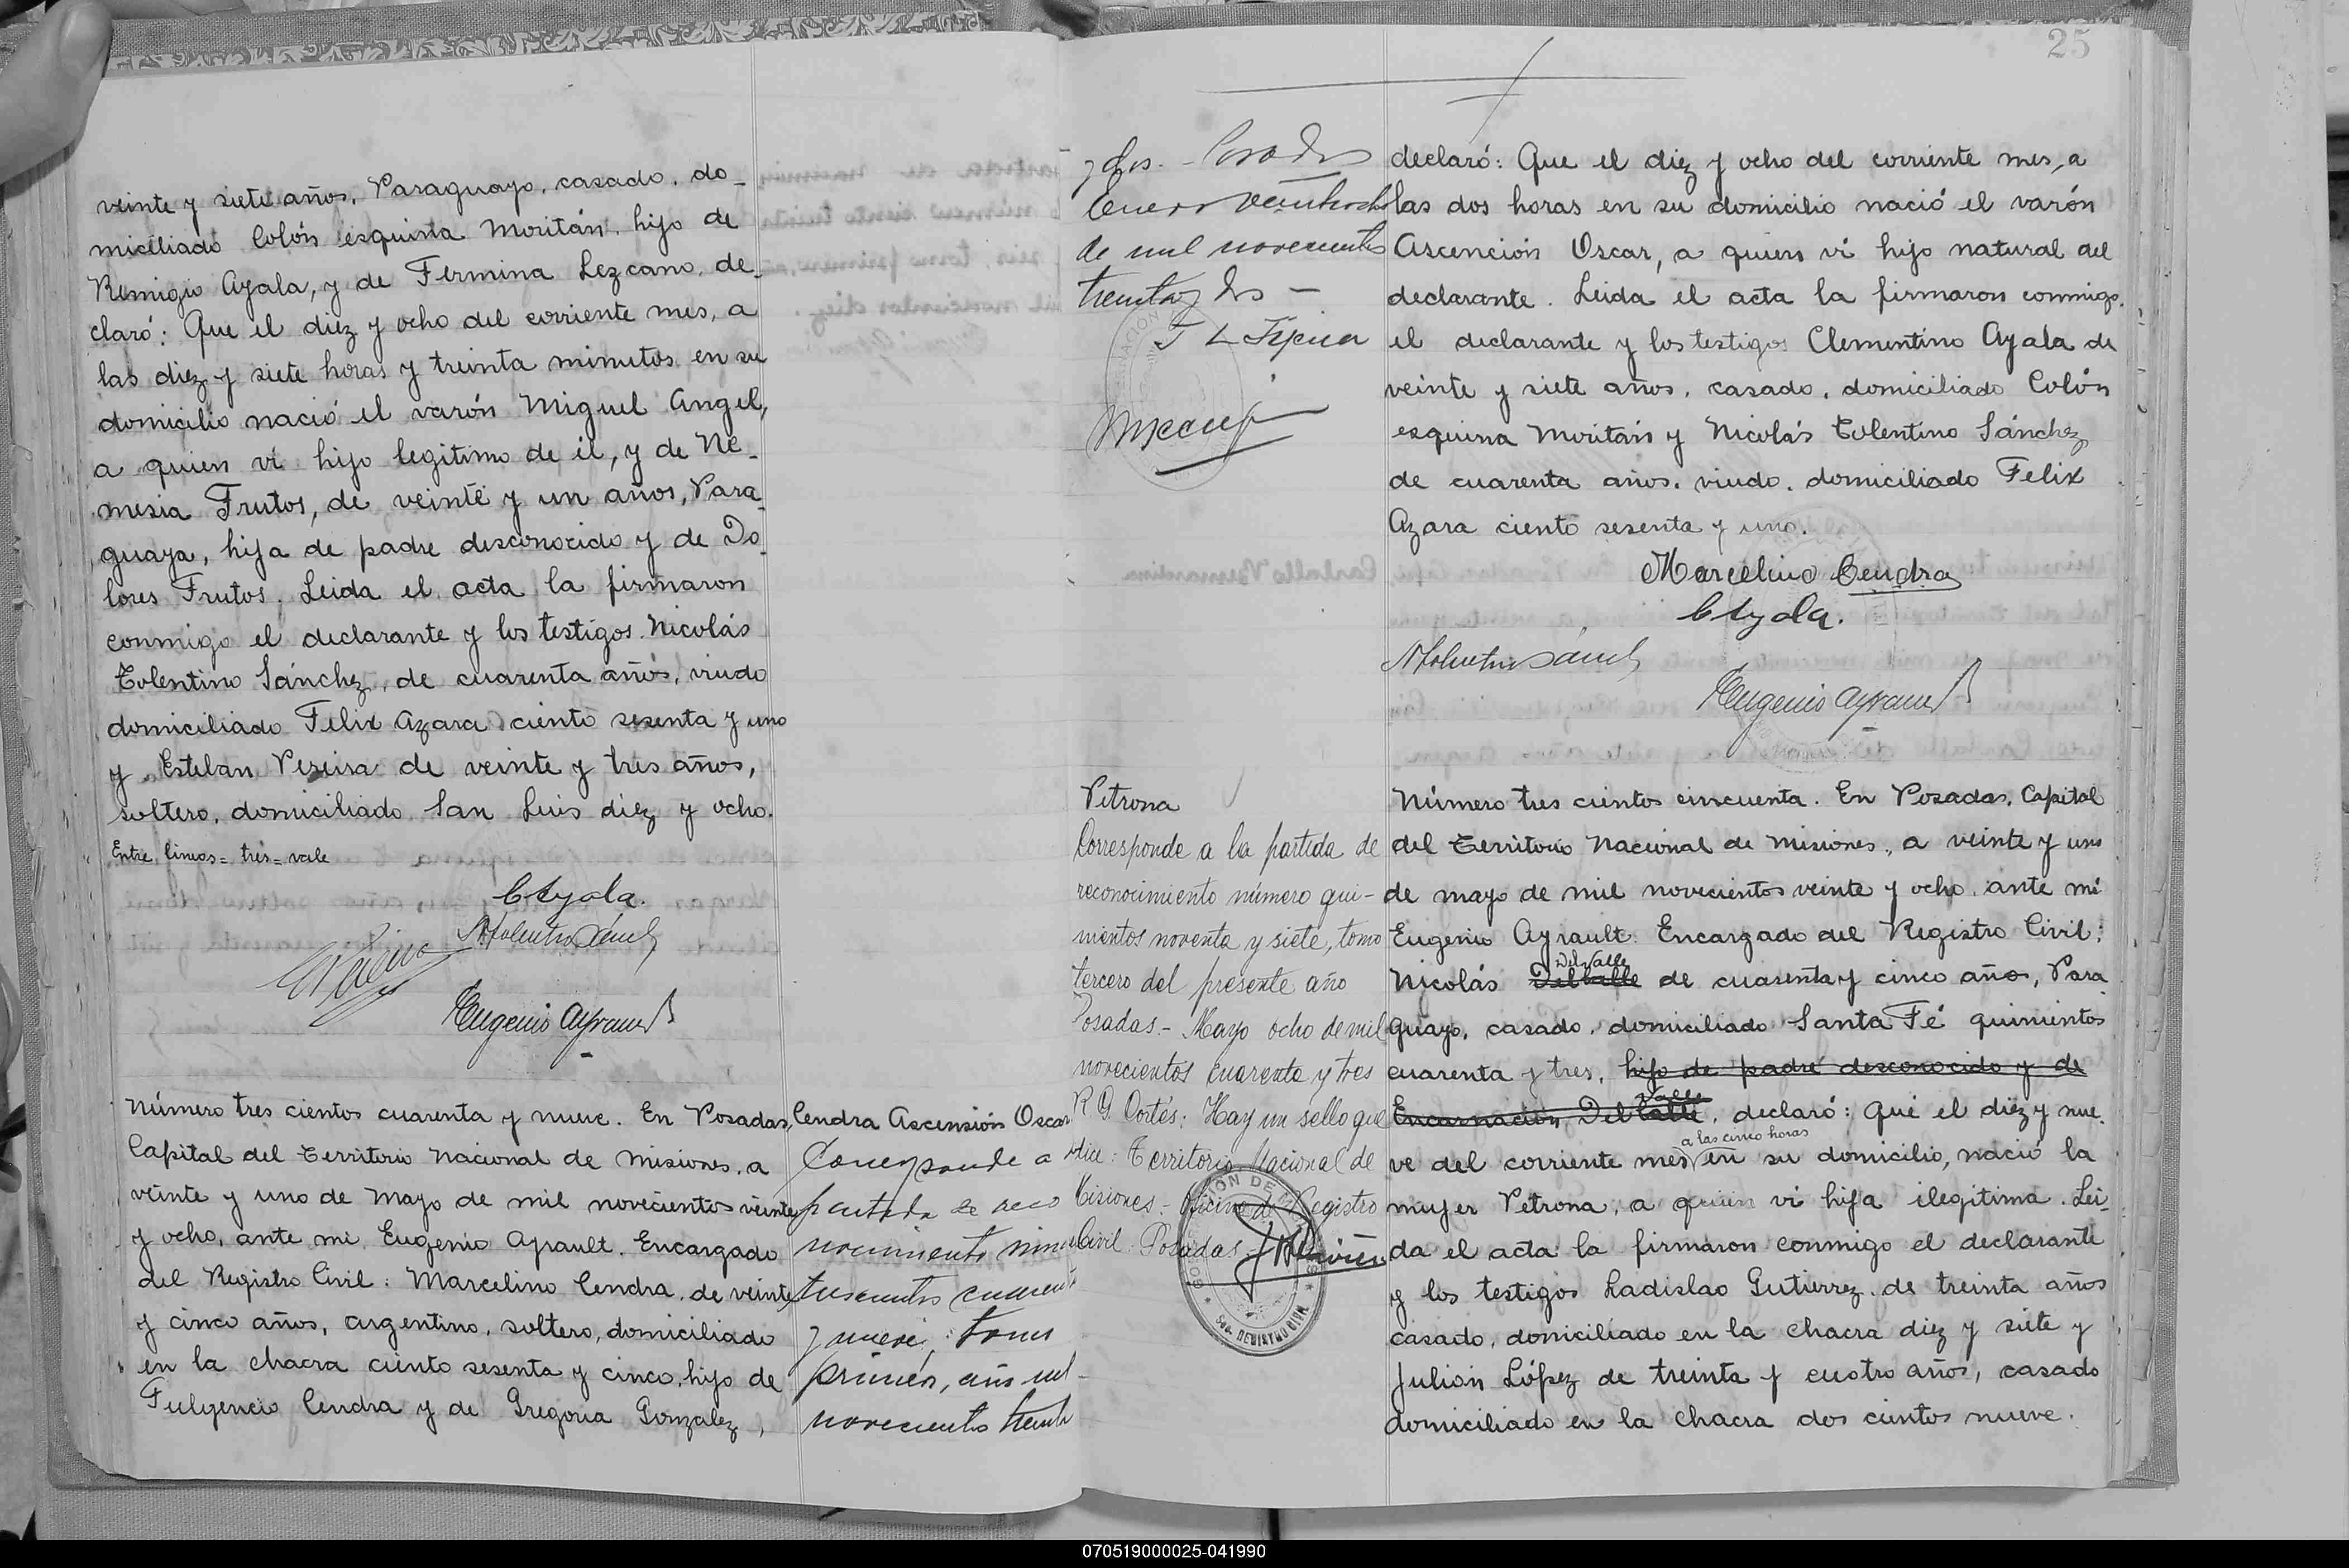 veinte y siete años, Paraguayo, casado, do-
miciliado Colón esquina Moritán, hijo de
Remigio Ayala, y de Fermina Lezcano, de-
claró: Que el diez y ocho del corriente mes, a
las diez y siete horas y treinta minutos en su
domicilio nació el varón Miguel Angel,
a quien vi hijo legitimo de él, y de Ne-
mesia Frutos, de veinte y un años, Para-
guaya, hija de padre desconocido y de Do-
lores Frutos. Leida el acta la firmaron
conmigo el declarante y los testigos Nicolás
Tolentino Sánchez, de cuarenta años, viudo
domiciliado Felix Azara ciento sesenta y uno
y Esteban Pereira de veinte y tres años,
soltero, domiciliado San Luis diez y ocho.
Entre lineas = tres = vale
CAyala.
NTolentino Sánch
Eugenio Ayrault
Número tres cientos cuarenta y nueve. En Posadas,
Capital del Territorio Nacional de Misiones, a
veinte y uno de Mayo de mil novecientos veinte
y ocho, ante mi Eugenio Ayrault. Encargado
del Registro Civil: Marcelino Cendra, de veinte
y cinco años, argentino, soltero, domiciliado
en la chacra ciento sesenta y cinco, hijo de
Fulgencio Cendra y de Gregoria Gonzalez,
Cendra Ascensión Oscar
Corresponde a
partida de reco
nocimiento núme
trescientos cuarent
y nueve, tomo
primero, año mil
novecientos treinta
25
y dos. - Posadas
Enero veintiocho
de mil novecientos
treinta y dos -
declaró: Que el diez y ocho del corriente mes, a
las dos horas en su domicilio nació el varón
Ascención Oscar, a quien vi hijo natural del
declarante. Leida el acta la firmaron conmigo,
el declarante y los testigos Clementino Ayala de
veinte y siete años, casado, domiciliado Colón
esquina Moritán y Nicolás Tolentino Sánchez
de cuarenta años, viudo, domiciliado Felix
Azara ciento sesenta y uno.
Marcelino Cendra
CAyala.
NTolentino Sánch
Eugenio Ayrault
Petrona
Corresponde a la partida de
reconocimiento número qui-
nientos noventa y siete, tomo
tercero del presente año
Posadas - Mayo ocho de mil
novecientos cuarenta y tres
R G Cortés: Hay un sello que
dice: Territorio Nacional de
Misiones - Oficina de Registro
Civil Posadas
Número tres cientos cincuenta. En Posadas, Capital
del Territorio Nacional de Misiones, a veinte y uno
de mayo de mil novecientos veinte y ocho, ante mi
Eugenio Ayrault. Encargado del Registro Civil:
Del Valle
Nicolás Del Valle de cuarenta y cinco años, Para
guayo, casado, domiciliado Santa Fé quinientos
cuarenta y tres, hijo de padre desconocido y de
Valle
Encarnación Del Valle, declaró: Que el diez y nue-
a las cinco horas
ve del corriente mes en su domicilio, nació la
mujer Petrona, a quien vi hija ilegitima. Lei-
da el acta la firmaron conmigo el declarante
y los testigos Ladislao Gutierrez de treinta años
casado, domiciliado en la chacra diez y siete y
Julián López de treinta y cuatro años, casado
domiciliado en la chacra dos cientos nueve.
070519000025-041990